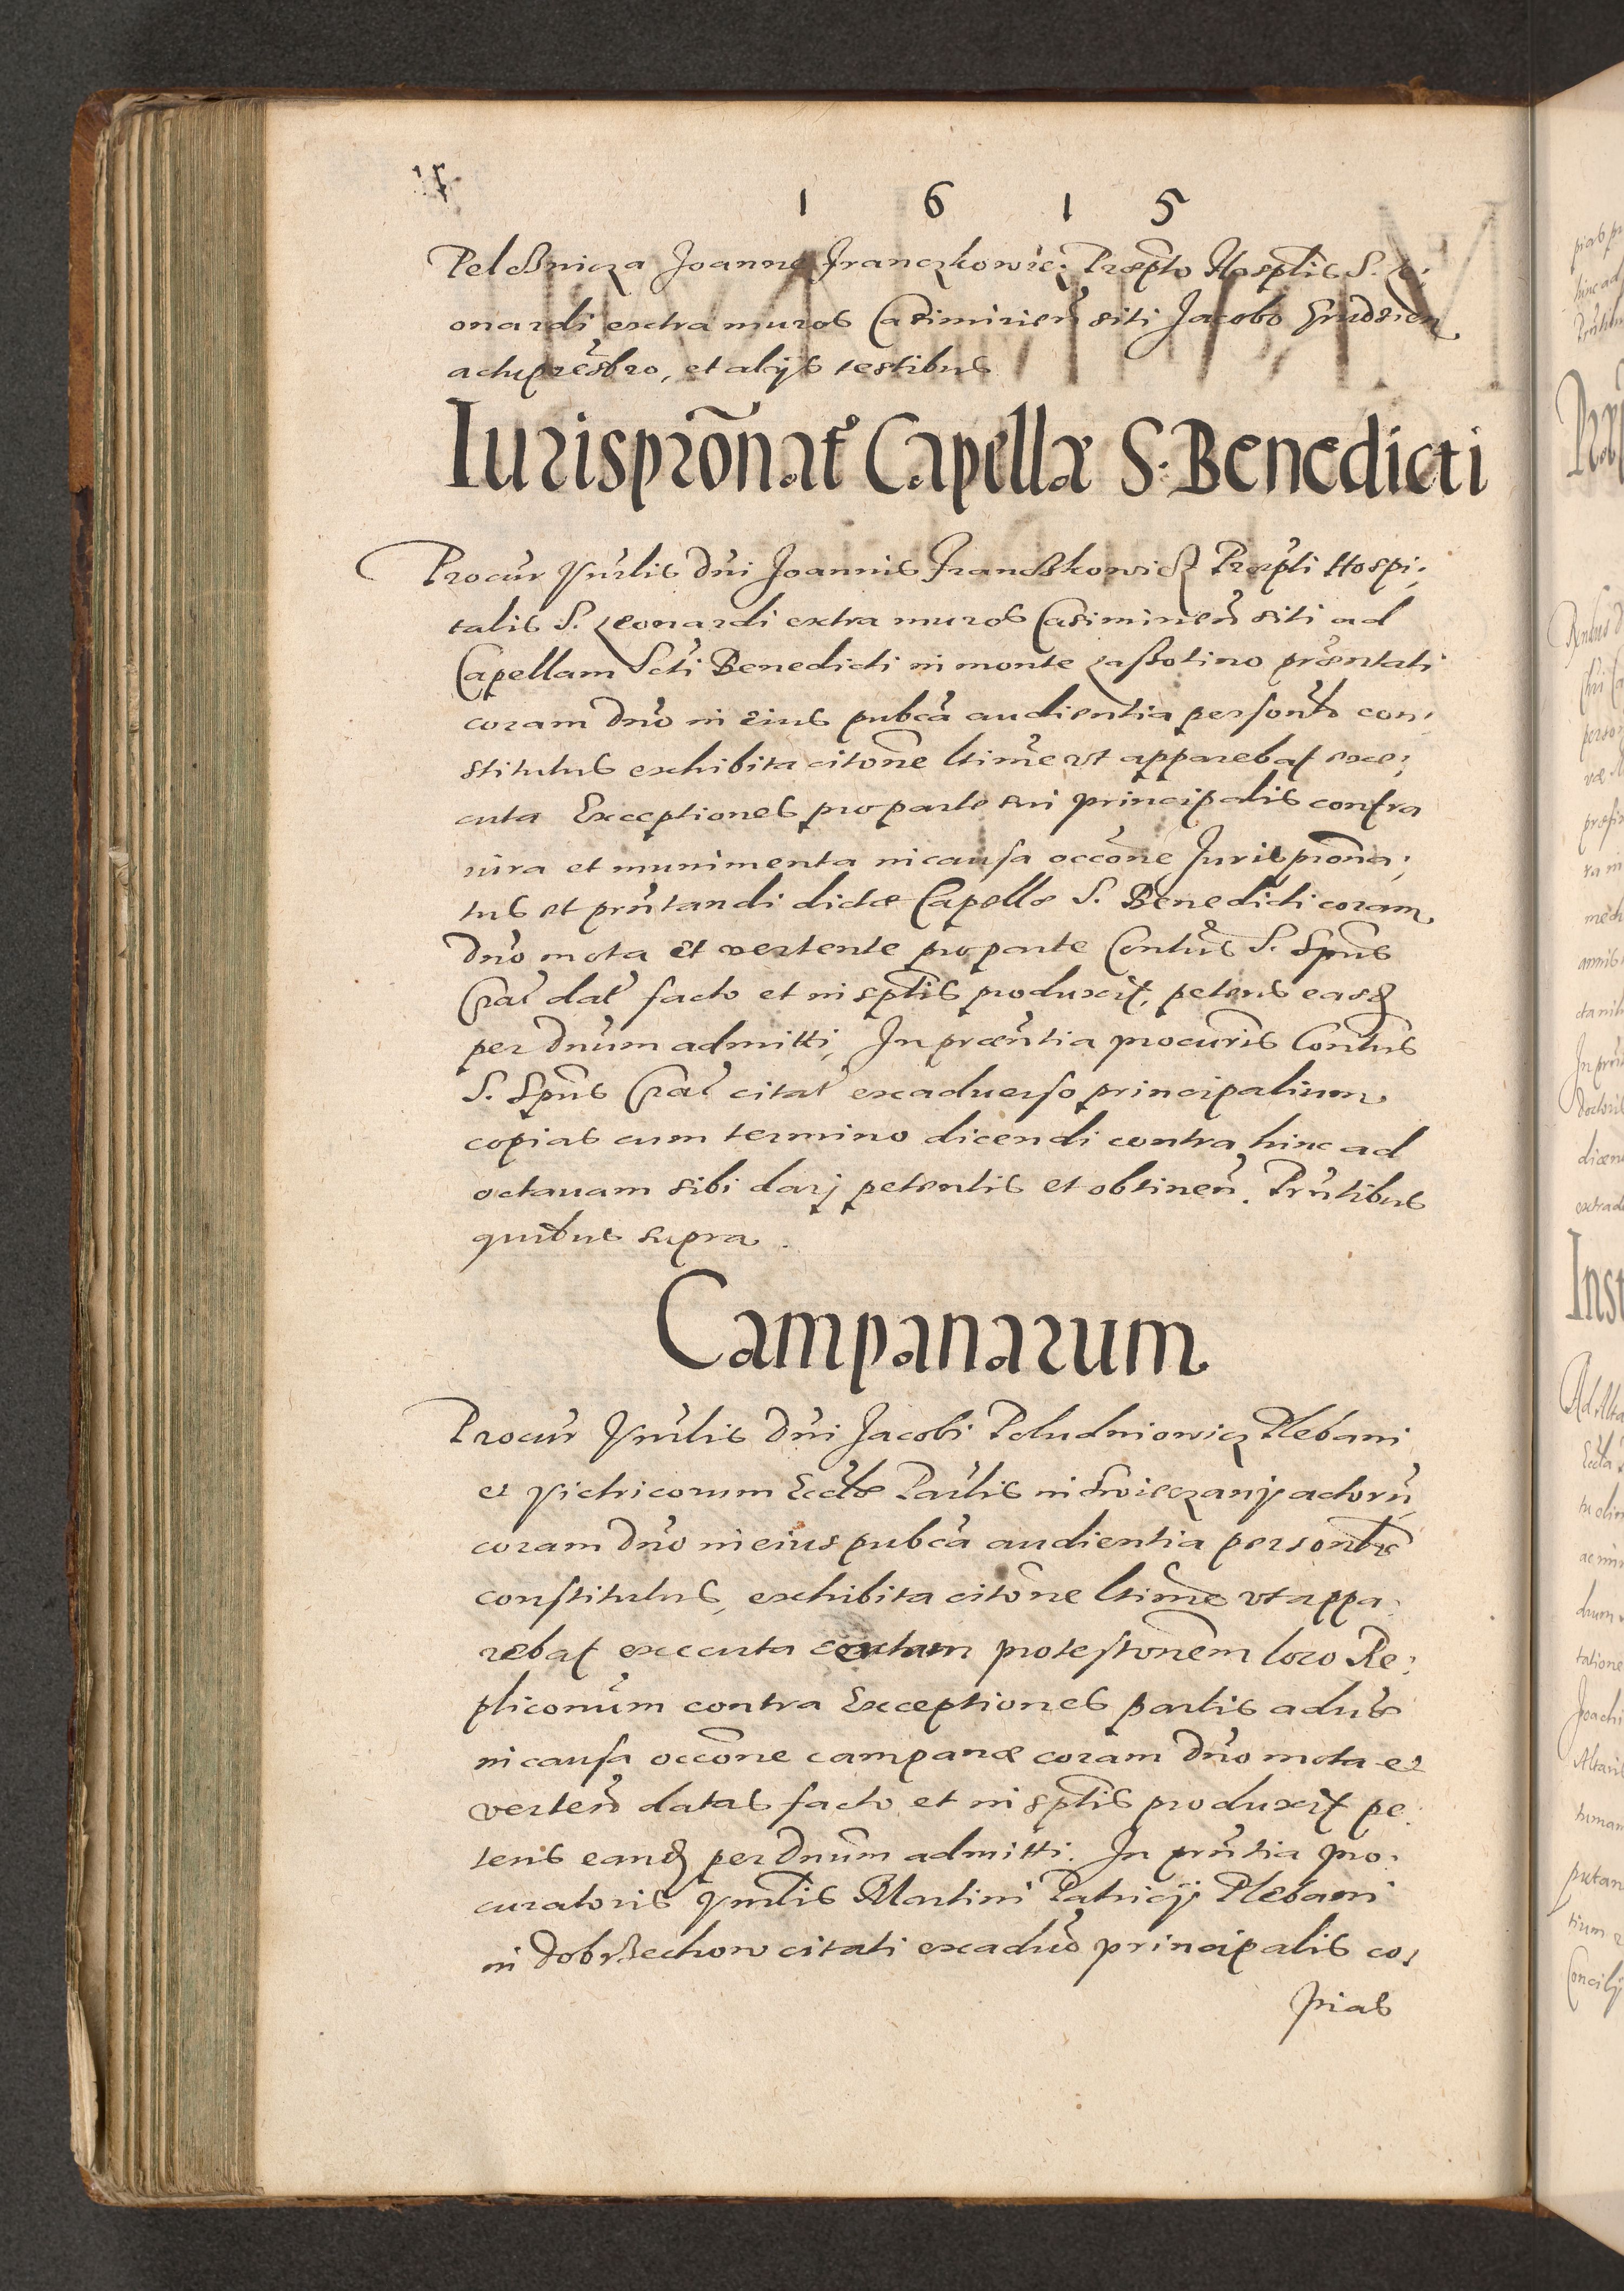 1 6 1 5
Pelcznicza Joanne Franczkowic: Præpto Hosptlis S. Le:
onardi extra muros Casimirien̄ siti Jacobo
actu præsbro, et alijs testibus
Iurispro͞nat9 Capellæ S. Benedicti
Procur Vnrlis Dn̄i Joannis Franczkowicz Præpti Hospi:
talis S. Leonardi extra muros Casimirien̄ siti ad
Capellam Scti Benedicti in monte Lassotino præntati
coram Dn̄o in eius pubca audientia persontr con:
stitutus exhibita citōne ltime vt apparebat exe:
cuta Exceptiones pro parte sui principalis contra
iura et munimenta in causa occōne Jurisprōna:
tus et prn̄tandi dictæ Capellæ S. Benedicti coram
Dn̄o mota et vertente pro parte Contus S. Spūs
Crac dat facto et in sptis produxit, petens easq
per Dn̄um admitti, In præn̄tia procuris Contus
S. Spūs Crac citat exaduerso principalium
copias cum termino dicendi contra hinc ad
octauam sibi darj petentis et obtinen̄. Prn̄tibus
quibus supra.
Campanarum
Procur Vnrlis Dn̄i Jacobi Poludniowicz Plebani
et Victricorum Eccłæ Parłis in actorū
coram Dn̄o in eius pubca audientia persontr
constitutus, exhibita citōne ltime vt appa:
rebat executa certam protestōnem loco Re:
plicōnum contra Exceptiones partis aduer
in causa occōne campanæ coram Dn̄o mota et
verten̄ datas facto et in sptis produxit pe:
tens eanq per Dn̄um admitti. In prn̄tia pro:
curatoris Vnrlis Martini Patricij Plebani
in Dobrzechow citati exaduō principalis co:
pias